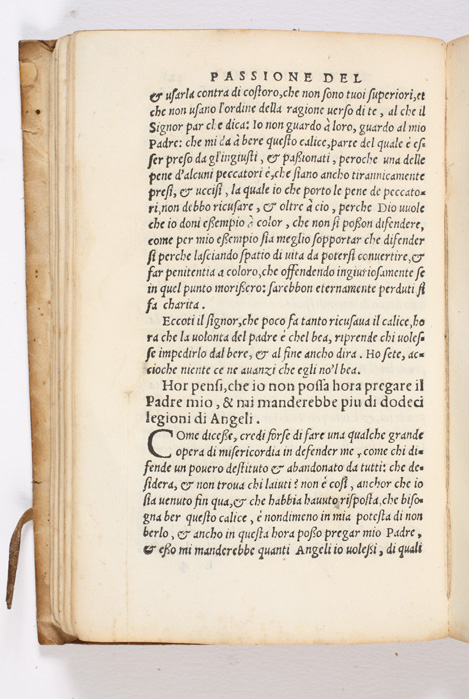 PASSIONE DEL
& usarla contra di costoro, che non sono tuoi superiori, et
che non usano l'ordine della ragione verso di te, al che il
Signor par che dica: Io non guardo à loro, guardo al mio
Padre: che mi dà à bere questo calice, parte del quale è es
ser preso da gl'ingiusti, & paßionati, peroche una delle
pene d'alcuni peccatori è, che siano ancho tirannicamente
presi, & uccisi, la quale io che porto le pene de peccato-
ri, non debbo ricusare, & oltre à cio, perche Dio vuole
che io doni eßempio à color, che non si poßon difendere,
come per mio eßempio sia meglio sopportar che difender
si perche lasciando spatio di vita da potersi convertire, &
far penitentia a coloro, che offendendo ingiuriosamente se
in quel punto morißero: sarebbon eternamente perduti si
fa charita.
Eccoti il signor, che poco fa tanto ricusava il calice, ho
ra che la volonta del padre è chel bea, riprende chi voles-
se impedirlo dal bere, & al fine ancho dira. Ho sete, ac-
cioche niente ce ne avanzi che egli no'l bea.
Hor pensi, che io non possa hora pregare il
Padre mio, & mi manderebbe piu di dodeci
legioni di Angeli.
COme diceße, credi forse di fare una qualche grande
opera di misericordia in defender me, come chi di-
fende un povero destituto & abandonato da tutti: che de-
sidera, & non trova chi laiuti? non è cosi, anchor che io
sia venuto fin qua, & che habbia havuto risposta, che biso-
gna ber questo calice, è nondimeno in mia potesta di non
berlo, & ancho in questa hora poßo pregar mio Padre,
& eßo mi manderebbe quanti Angeli io voleßi, di quali